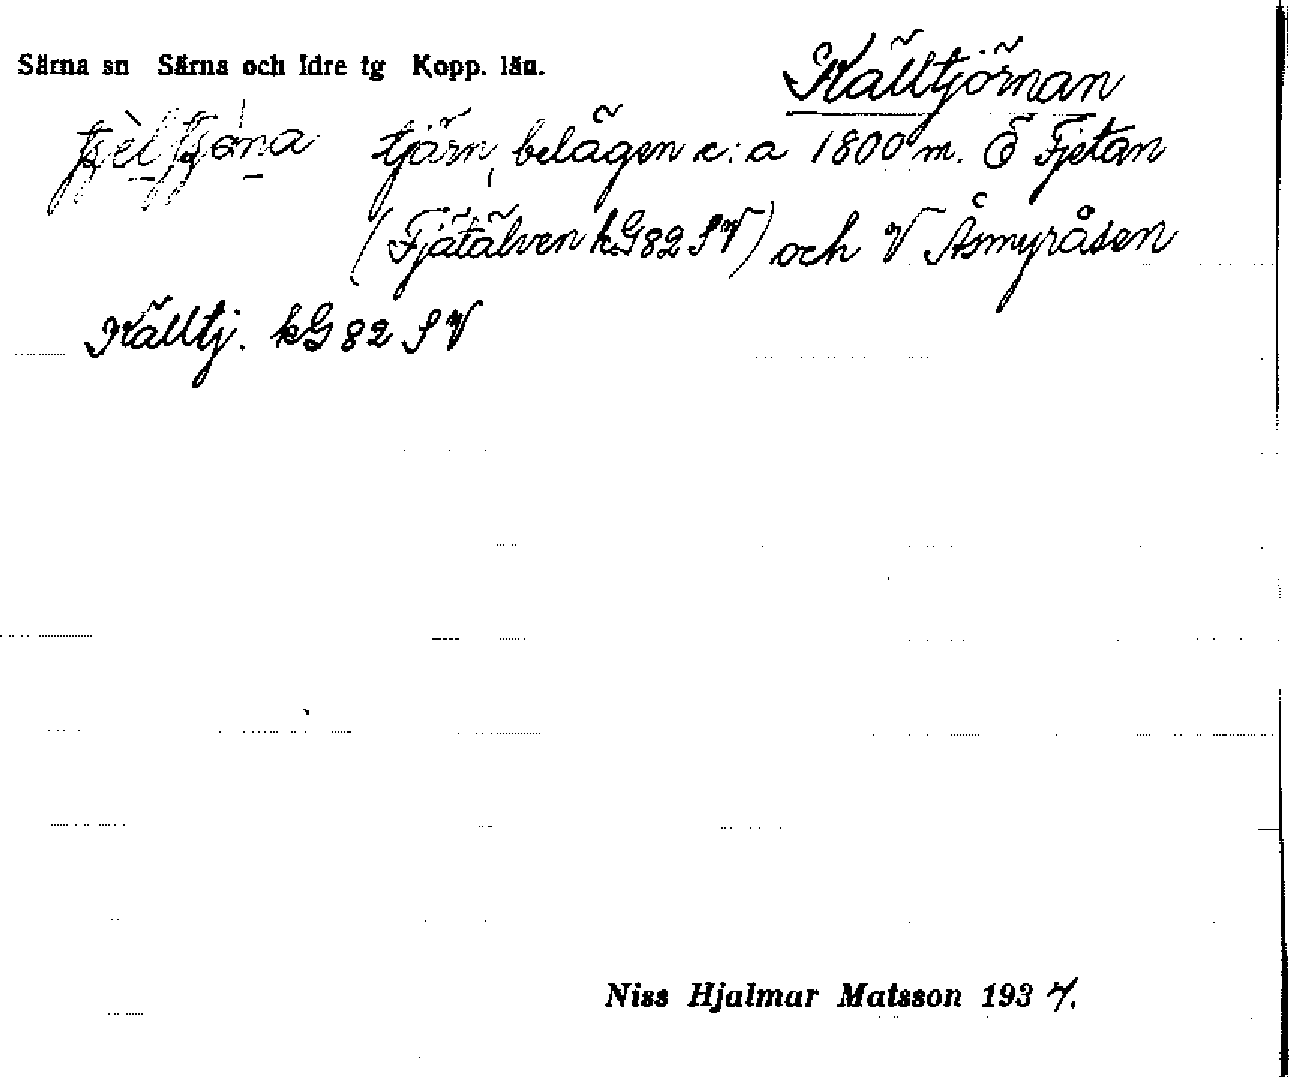 Särna sn Särna och Idre tg Kopp. län.
Källtjörnan
tjärn, belägen c:a 1800 m. Ö Fjetan
(Fjätälven kG82SV) och V Åsmyråsen
Källtj. kG82SV
Niss Hjalmar Matsson 1937.